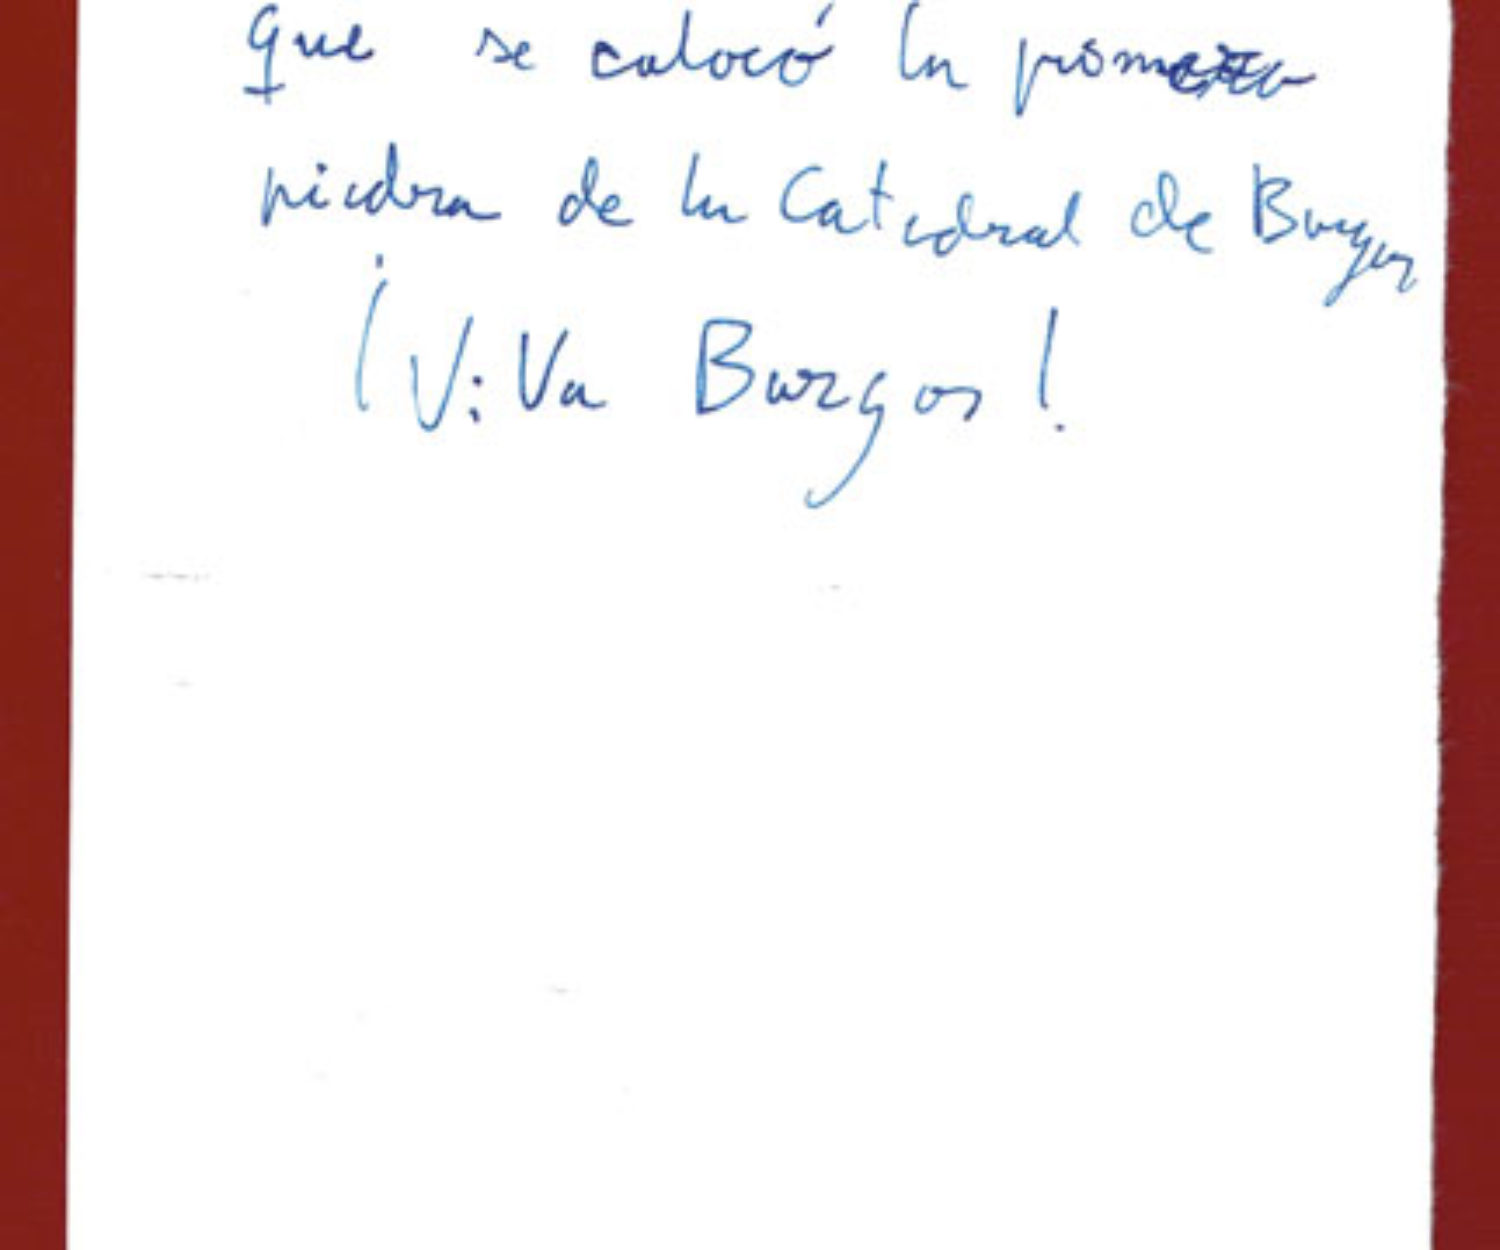 que se colocó la primera
piedra de la Catedral de Burgos
¡Viva Burgos!